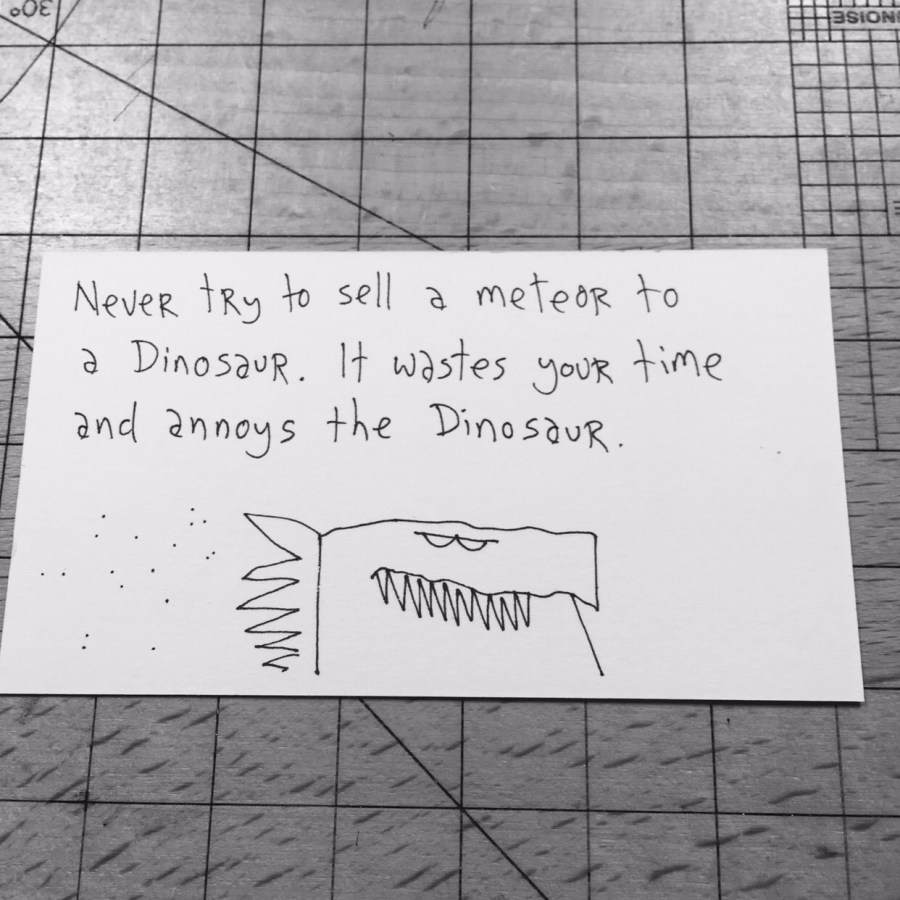 30°
NOISE
Never try to sell a meteor to
a Dinosaur. It wastes your time
and annoys the Dinosaur.